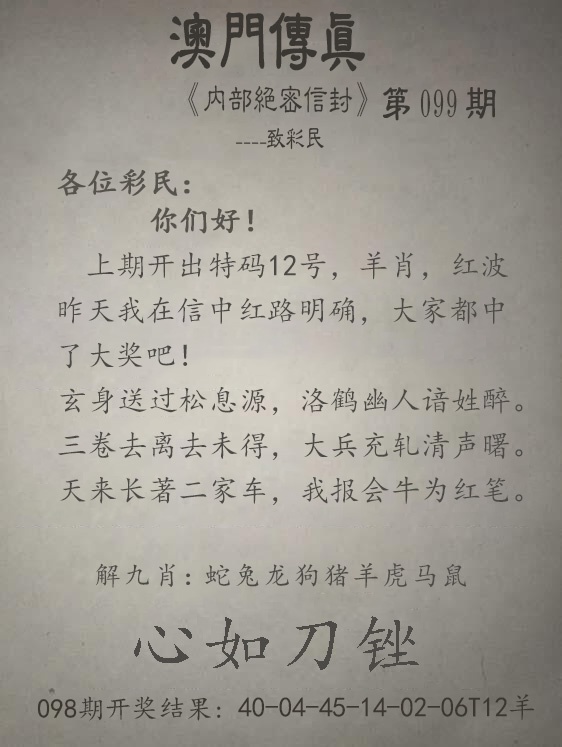 澳門傳真
《内部絕密信封》第099期
----致彩民
各位彩民：
你们好！
上期开出特码12号，羊肖，红波
昨天我在信中红路明确，大家都中
了大奖吧！
玄身送过松息源，洛鹤幽人谙姓醉。
三卷去离去未得，大兵充轧清声曙。
天来长著二家车，我报会牛为红笔。
解九肖：蛇兔龙狗猪羊虎马鼠
心如刀锉
098期开奖结果：40-04-45-14-02-06T12羊